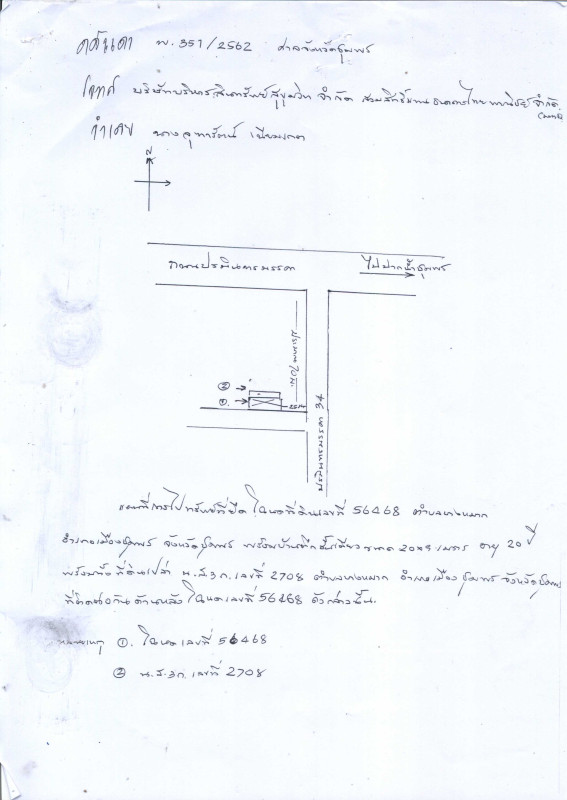 คดีแดง พ.351/2562 ศาลจังหวัดชุมพร
โจทก์ บริษัทบริหารสินทรัพย์สุขุมวิท จำกัด สวมสิทธิ์แทน ธนาคารไทยพาณิชย์ จำกัด
(มหาชน)
จำเลย นางจุฑารัตน์
N
ถนนปรมินทรมรรคา
ไปปากน้ำชุมพร
②
①
25 ม
ปรมินทรมรรคา 34
แผนที่การไปทรัพย์ที่ยึด โฉนดที่ดินเลขที่ 56468 ตำบลบางหมาก
อำเภอเมืองชุมพร จังหวัดชุมพร พร้อมบ้านตึกชั้นเดียว ขนาด 20x9 เมตร อายุ 20 ปี
พร้อมทั้งที่ดินเปล่า น.ส.3ก. เลขที่ 2708 ตำบลบางหมาก อำเภอเมืองชุมพร จังหวัดชุมพร
ที่ติดต่อกันด้านหลังโฉนดเลขที่ 56468 ดังกล่าวนั้น.
หมายเหตุ ①. โฉนดเลขที่ 56468
② น.ส.3ก. เลขที่ 2708